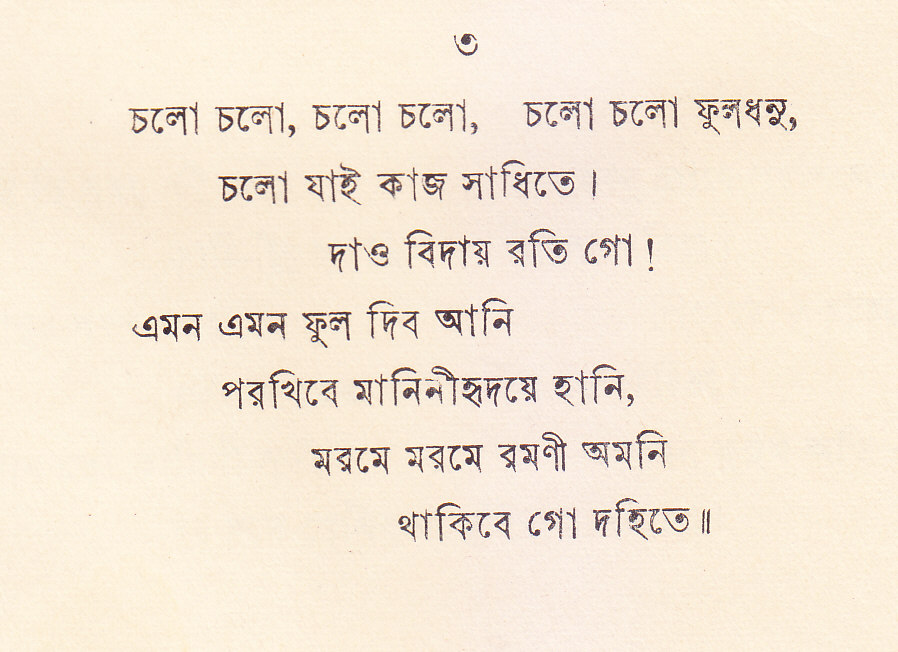 ৩
চলো চলো, চলো চলো, চলো চলো ফুলধনু,
চলো যাই কাজ সাধিতে।
দাও বিদায় রতি গো!
এমন এমন ফুল দিব আনি
পরখিবে মানিনীহৃদয়ে হানি,
মরমে মরমে রমণী অমনি
থাকিবে গো দহিতে॥